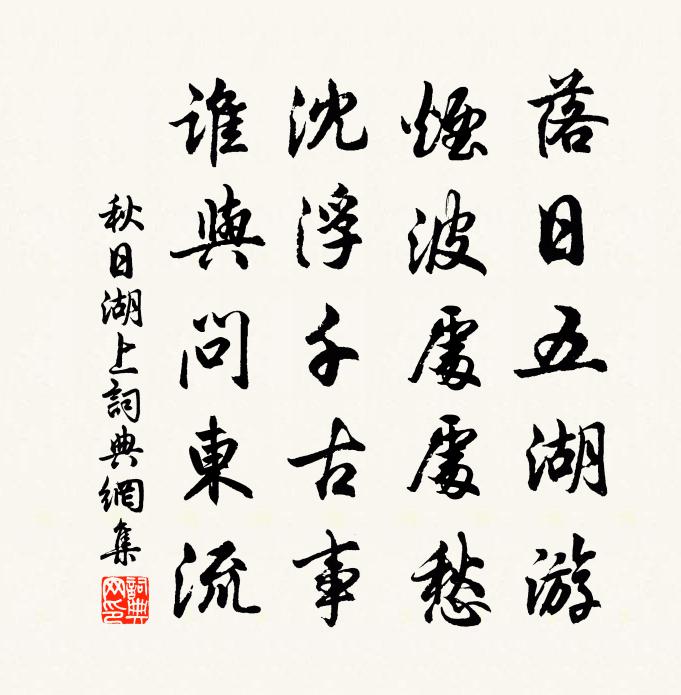 落日五湖游
煙波處處愁
沈浮千古事
誰與問東流
秋日湖上詞典網集
詞典網印